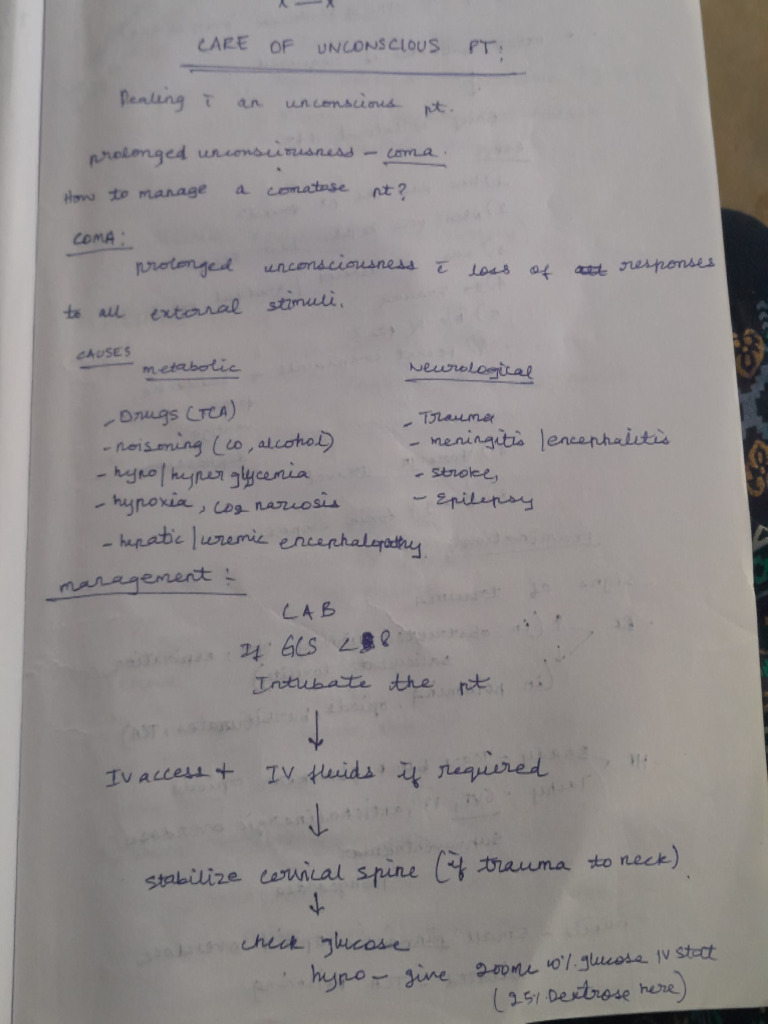 x — x
CARE OF UNCONSCIOUS PT:
Dealing c̄ an unconscious pt.
prolonged unconsciousness – coma.
How to manage a comatase pt?
COMA:
prolonged unconsciousness c̄ loss of responses
to all external stimuli.
CAUSES
metabolic
- Drugs (TCA)
- poisoning (CO, alcohol)
- hypo/hyper glycemia
- hypoxia, CO2 narcosis
- hepatic/uremic encephalopathy
Neurological
- Trauma
- meningitis/encephalitis
- stroke,
- Epilepsy
management :-
If GCS < 8
Intubate the pt
↓
IV access + IV fluids if required
↓
stabilize cervical spine (if trauma to neck).
↓
check glucose
hypo – give 200ml 10% glucose IV stat
(25% Dextrose here)